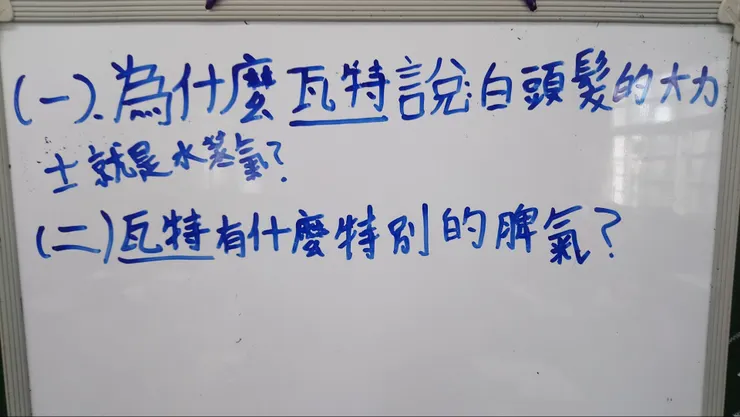 (一).為什麼瓦特說:白頭髮的大力
士就是水蒸氣?
(二)瓦特有什麼特別的脾氣?